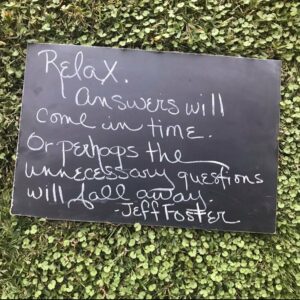 Relax.
Answers will
come in time.
Or perhaps the
unnecessary questions
will fall away.
-Jeff Foster